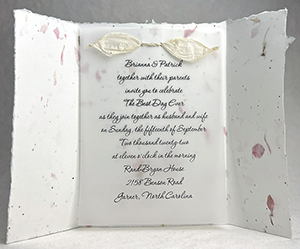 Brianna & Patrick
together with their parents
invite you to celebrate
"The Best Day Ever
as they join together as husband and wife
on Sunday, the fifteenth of September
Two thousand twenty-two
at eleven o'clock in the morning
Rand-Bryan House
2158 Benson Road
Garner, North Carolina